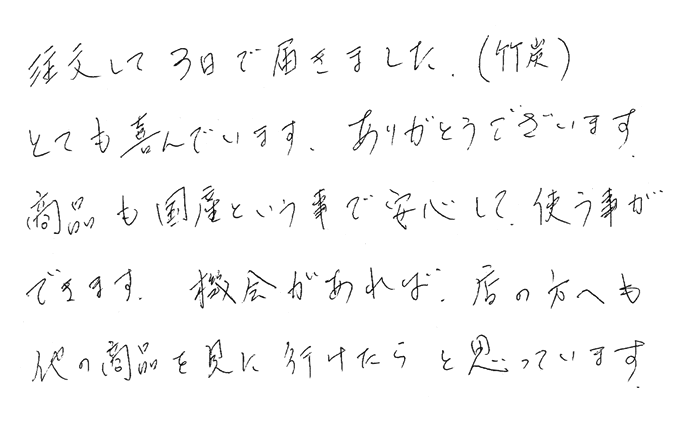 注文して3日で届きました.(竹炭)
とても喜んでいます. ありがとうございます.
商品も国産という事で安心して.使う事が
できます. 機会があれば.店の方へも
他の商品を見に行けたらと思っています.